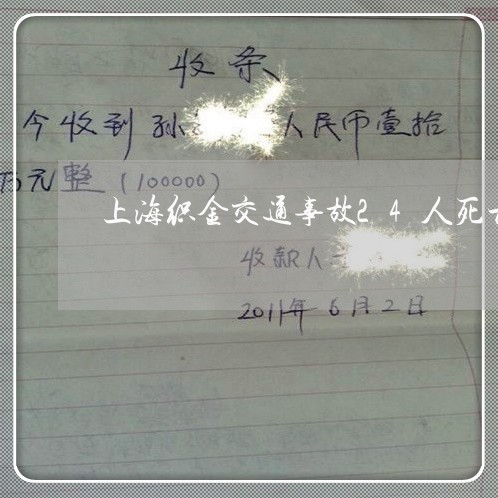 收条
今收到孙 人民币壹拾
万元整（100000）
上海织金交通事故24人死
收款人
2011年6月2日